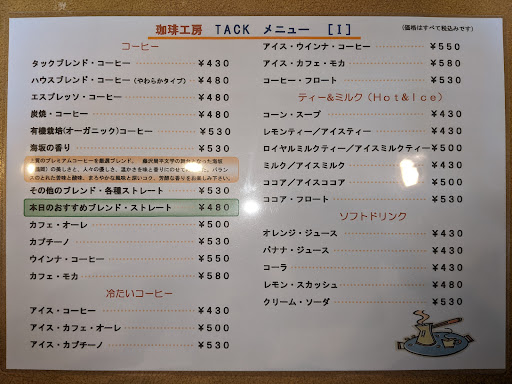 珈琲工房 TACK メニュー [Ⅰ]
(価格はすべて税込みです)
コーヒー
タックブレンド・コーヒー ¥430
ハウスブレンド・コーヒー (やわらかタイプ) ¥480
エスプレッソ・コーヒー ¥480
炭焼・コーヒー ¥480
有機栽培(オーガニック)コーヒー ¥530
海坂の香り ¥530
その他のブレンド・各種ストレート ¥530
本日のおすすめブレンド・ストレート ¥480
カフェ・オーレ ¥500
カプチーノ ¥530
ウインナ・コーヒー ¥550
カフェ・モカ ¥580
冷たいコーヒー
アイス・コーヒー ¥430
アイス・カフェ・オーレ ¥500
アイス・カプチーノ ¥530
アイス・ウインナ・コーヒー ¥550
アイス・カフェ・モカ ¥580
コーヒー・フロート ¥530
ティー&ミルク (Hot&Ice)
コーン・スープ ¥430
レモンティー/アイスティー ¥430
ロイヤルミルクティー/アイスミルクティー ¥500
ミルク/アイスミルク ¥430
ココア/アイスココア ¥500
ココア・フロート ¥530
ソフトドリンク
オレンジ・ジュース ¥430
バナナ・ジュース ¥430
コーラ ¥430
レモン・スカッシュ ¥480
クリーム・ソーダ ¥530